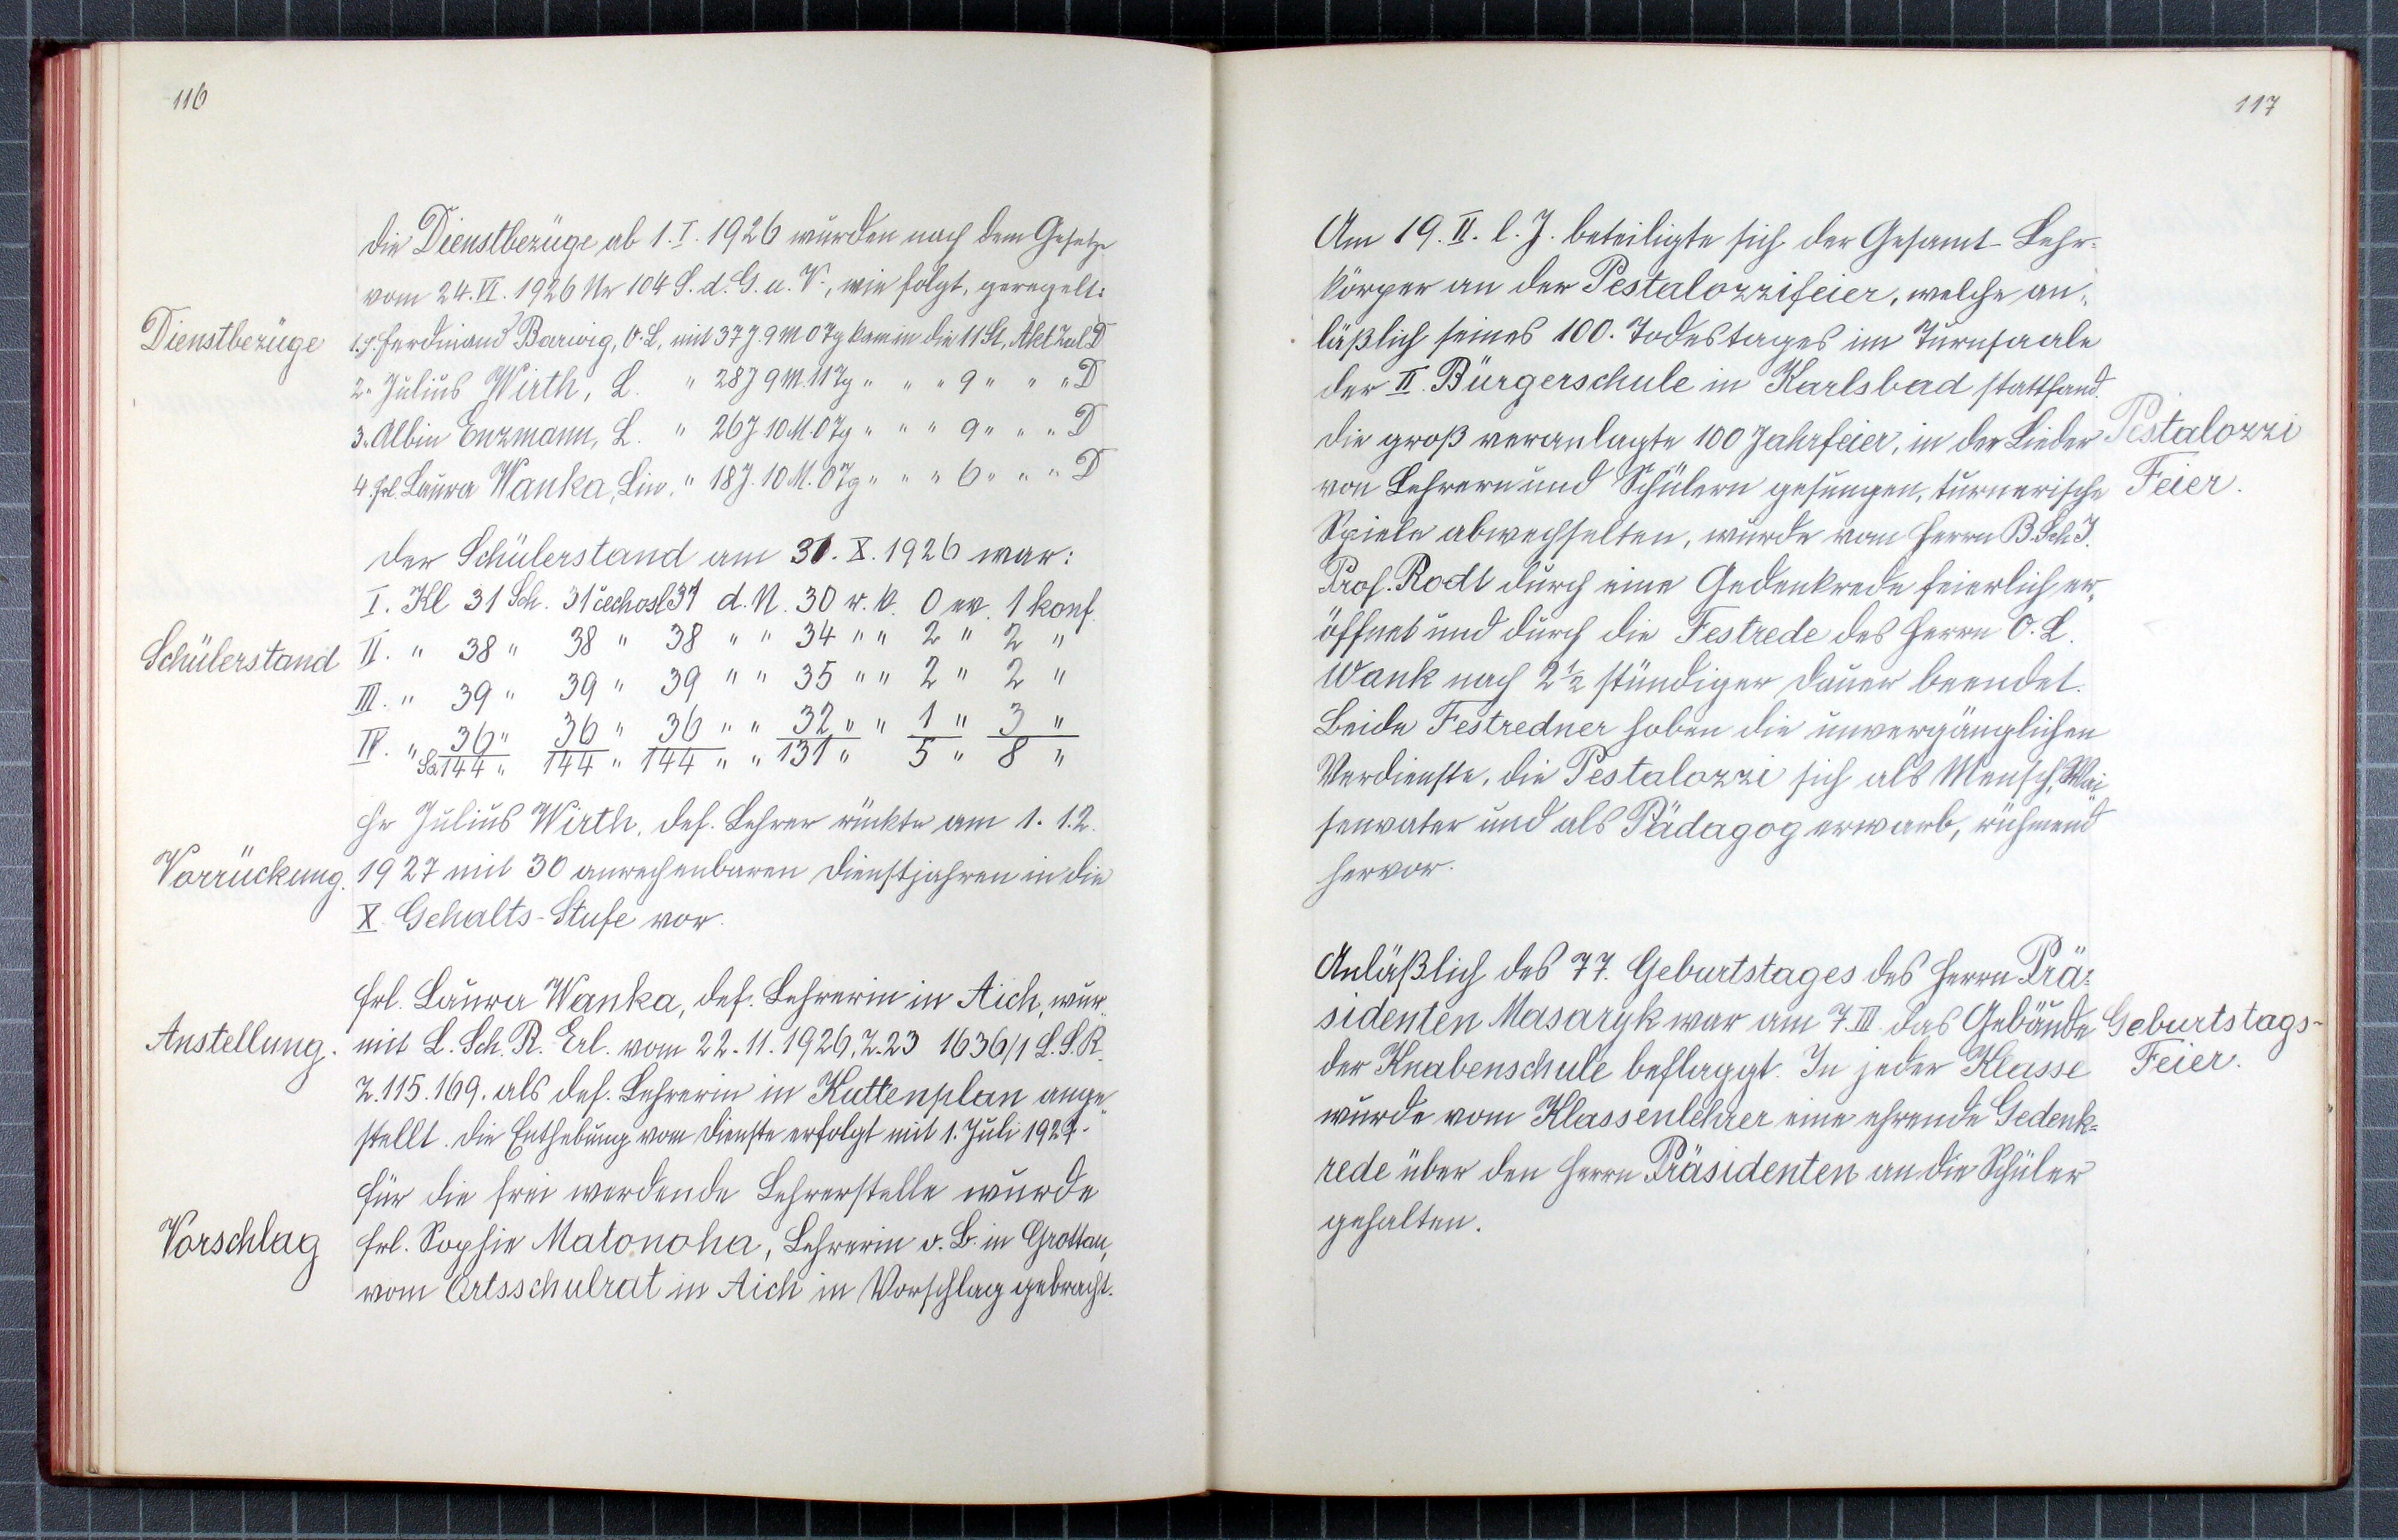 116
die Dienstbezüge ab 1. I. 1926 wurden nach dem Gesetze
vom 24. VI. 1926 Nr 104 S. d. G. u. V., wie folgt, geregelt:
Dienstbezüge
1. H. Ferdinand Barwig, O. L. mit 37 J. 9 M 0 Tg kam in die 11 St, Akt Zul D
2. " Julius Wirth, L. " 28 J 9 M. 11 Tg " " " 9 " " " D
3. " Albin Enzmann, L. " 26 J. 10 M. 0 Tg " " " 9 " " " D
4. Frl. Laura Wanka, Lin. " 18 J. 10 M. 0 Tg " " " 6 " " " D
Der Schülerstand am 31. X. 1926 war:
I. Kl 31 Sch. 31 čechosl 31 d. N. 30 r. k. 0 ev. 1 konf.
Schülerstand
II. " 38 " 38 " 38 " " 34 " " 2 " 2 "
III. " 39 " 39 " 39 " " 35 " " 2 " 2 "
IV. " 36 " 36 " 36 " " 32 " " 1 " 3 "
Sa 144 " 144 " 144 " " 131 " 5 " 8 "
Hr Julius Wirth, def. Lehrer rückte am 1. 12.
Vorrückung.
1927 mit 30 anrechenbaren Dienstjahren in die
X. Gehalts-Stufe vor.
Frl. Laura Wanka, def. Lehrerin in Aich, wur„
Anstellung.
mit L. Sch. R. Erl. vom 22. 11. 1926, Z. 23 1636/1 L. S. R.
Z. 115. 169. als def. Lehrerin in Kuttenplan ange„
stellt. Die Enthebung vom Dienste erfolgt mit 1. Juli 1927.
Für die frei werdende Lehrerstelle wurde
Vorschlag
Frl. Sophie Matonoha, Lehrerin o. B. in Grottau,
vom Ortsschulrat in Aich in Vorschlag gebracht.
117
Am 19. II. l. J. beteiligte sich der Gesamt-Lehr-
körper an der Pestalozzifeier, welche an„
läßlich seines 100. Todestages im Turnsaale
der II. Bürgerschule in Karlsbad stattfand.
Die groß veranlagte 100 Jahrfeier, in der Lieder
Pestalozzi
von Lehrern und Schülern gesungen, turnerische
Feier.
Spiele abwechselten, wurde vom Herrn B. Sch. I.
Prof. Rodt durch eine Gedenkrede feierlich er„
öffnet und durch die Festrede des Herrn O. L.
Wank nach 2 ½ stündiger Dauer beendet.
Beide Festredner hoben die unvergänglichen
Verdienste, die Pestalozzi sich als Mensch, Wai„
senvater und als Pädagog erwarb, rühmend
hervor.
Anläßlich des 77. Geburtstages des Herrn Prä=
sidenten Masaryk war am 7. III. das Gebäude
Geburtstags-
der Knabenschule beflaggt. In jeder Klasse
Feier.
wurde vom Klassenlehrer eine ehrende Gedenk=
rede über den Herrn Präsidenten an die Schüler
gehalten.